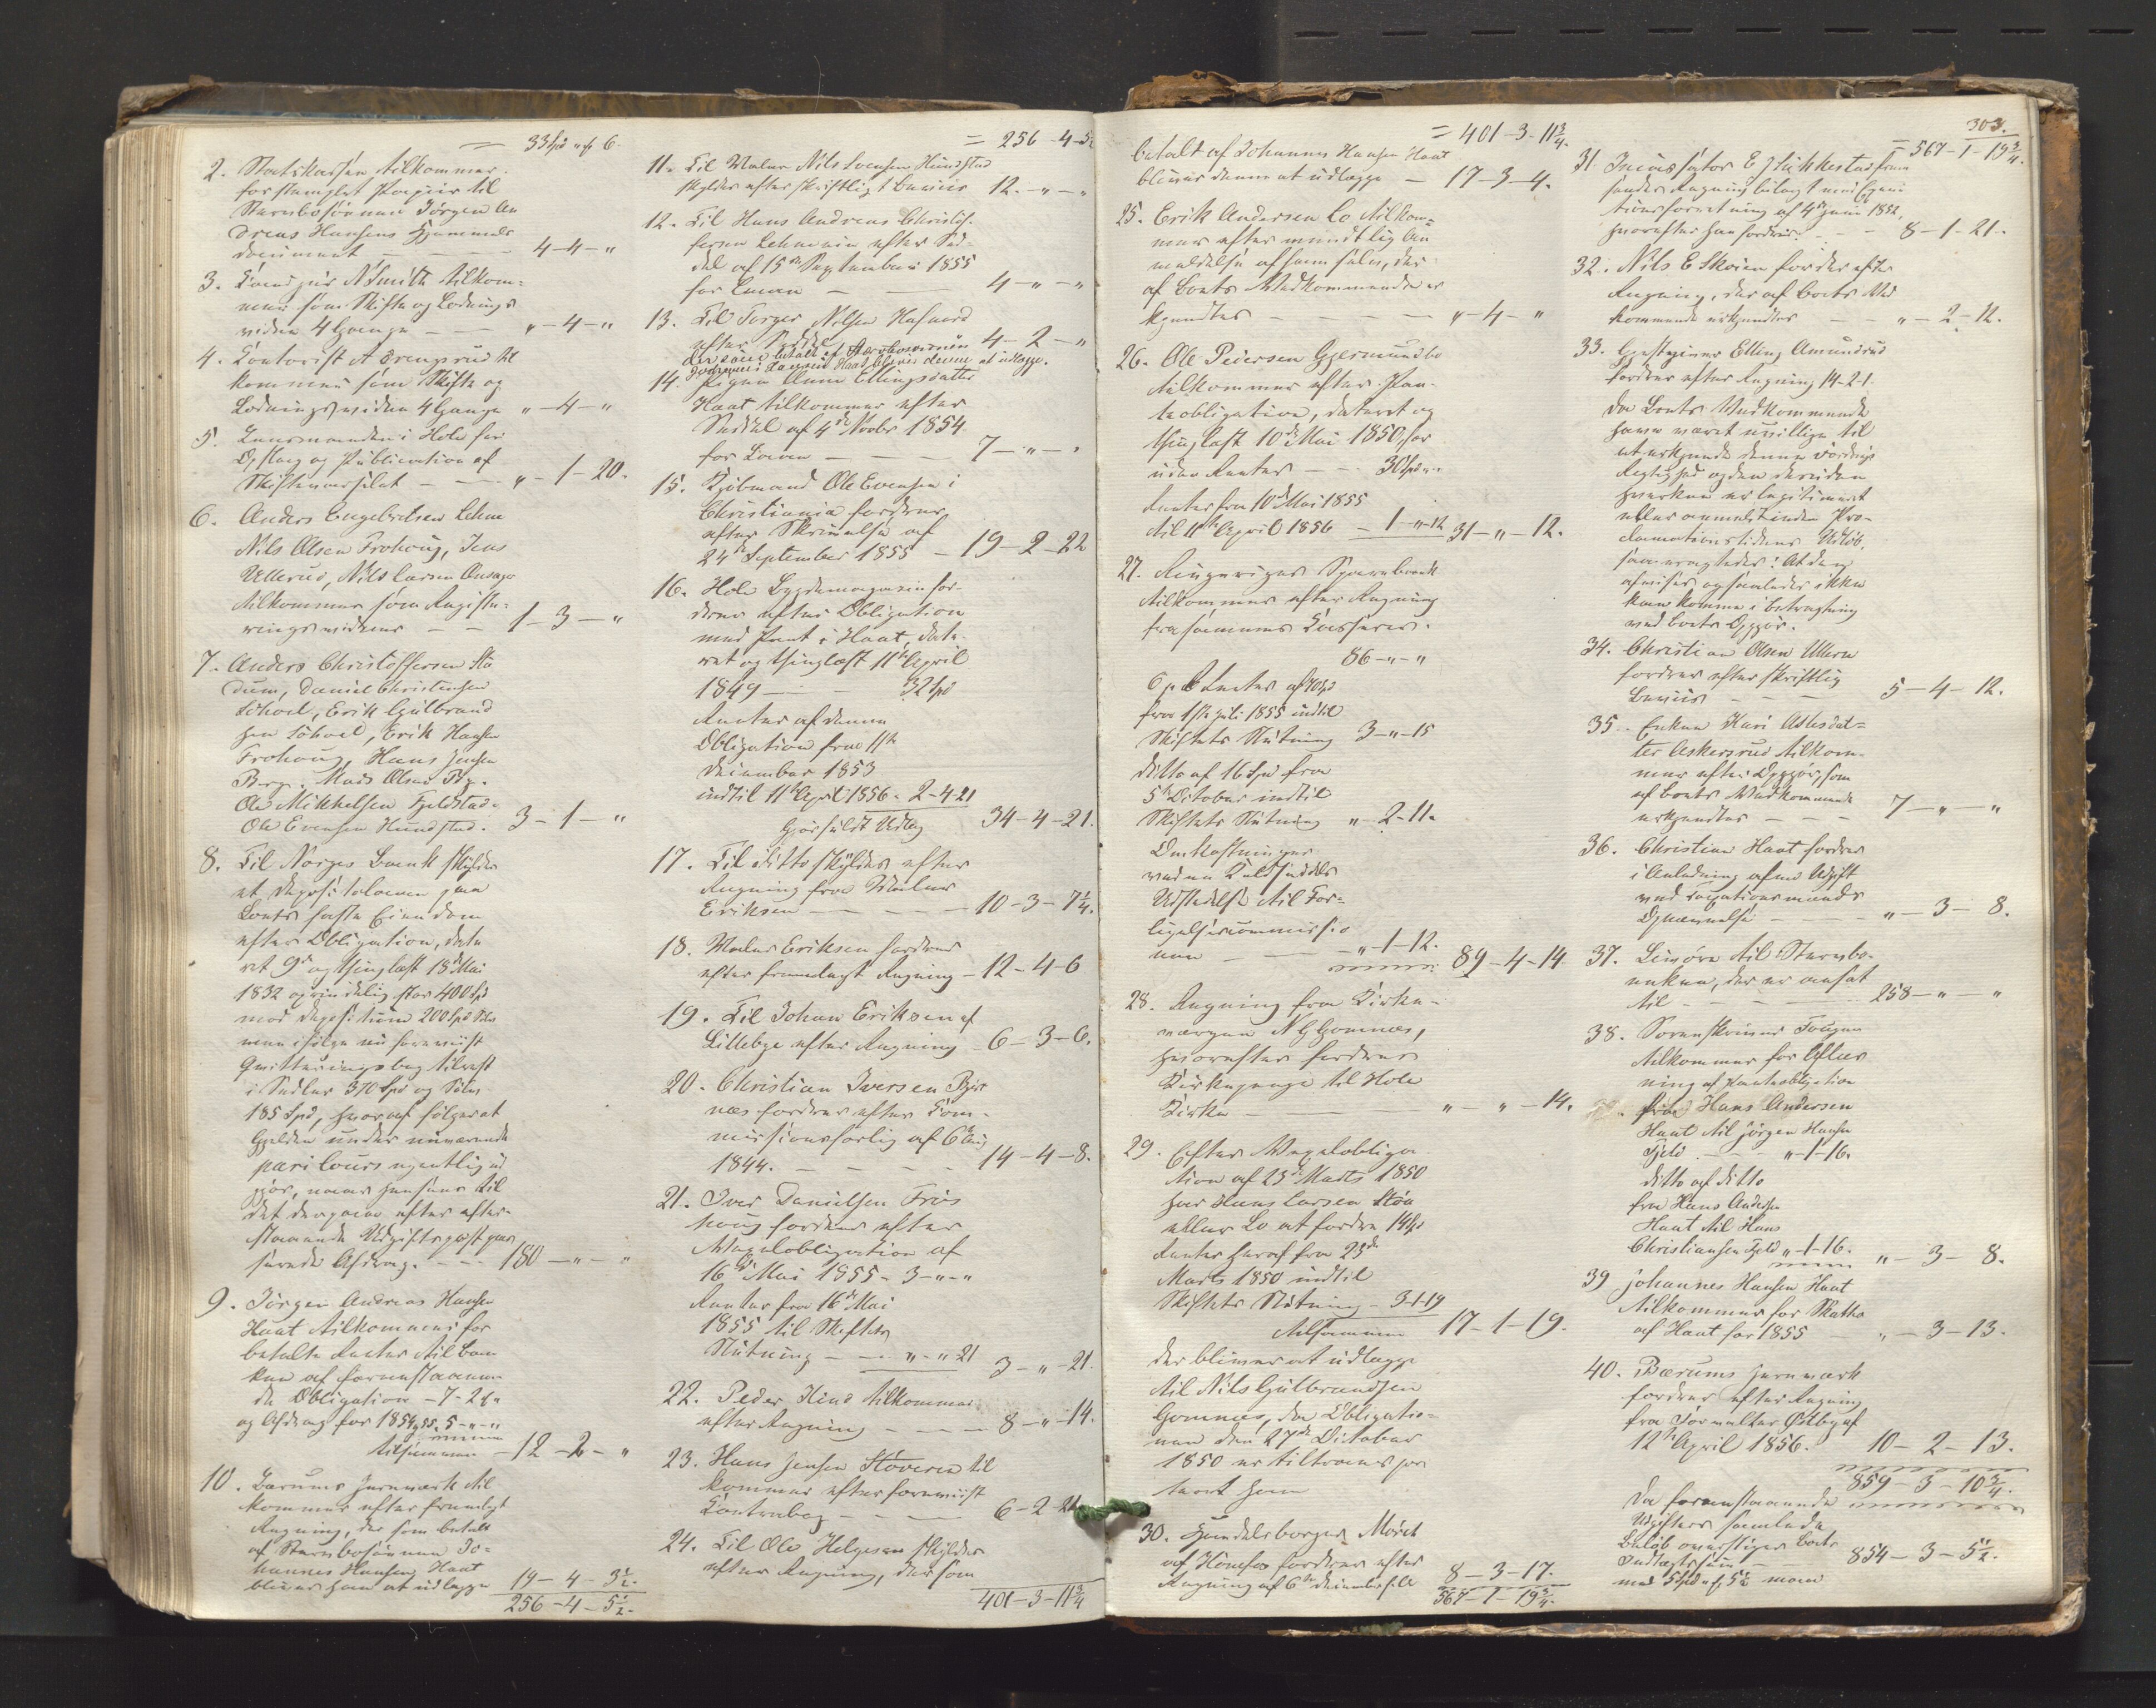 = 33 Spd " ß 6.
2. Statskassen tilkommer
for stemplet Papiir til
Stervbosønnen Jörgen An
dreas Hansens Hjemmels
document — — — 4-4-"
3. N Smith tilkom-
mer som Skifte og Lodnings
vidne 4 Gange — — "-4-"
4. Contorist A Drengsrud til
kommer som Skifte og
Lodningsvidne 4 Gange "-4-"
5. Lensmanden i Hole for
Opslag og Publication af
— — "-1-20.
6. Anders Engebretsen Lehne
Nils Olsen Frohoug, Jens
Ullerud, Nils Larsen
tilkommer som Registe-
ringsvidner — — 1-3-"
7. Anders Christoffersen Sta
dum, Daniel Christensen
Sohoel, Erik Gulbrand
sen Sohoel, Erik Hansen
Frohoug, Hans Jensen
Berg, Mads Olsen By.
Ole Mikkelsen Fjeldstad.
Ole Evensen Hundstad. 3-1-"
8. Til Norges Bank skyldes
et Depositolaan paa
Boets faste Eiendom
efter Obligation, date
ret 9de og thinglæst 18de Mai
1832 oprindelig stor 400 Spd
mod Depositum 200 Spd
men ifølge nu foreviist
Qvitteringsbog tilrest
i Sedler 370 Spd og Sølv
185 Spd, hvoraf følger at
Gjelden under nuværende
pari Cours egentlig ud
gjør, naar hensees til
det derpaa efter efter-
staaende Udgiftspost pas
serede Afdrag. — — 180-"-"
9. Jörgen Andreas Hansen
Haat tilkommer for
betalte Renter til Ban
ken af forestaaen
de Obligation - 7-2-"
og Afdrag for 1854 & 55. 5-"-"
tilsammen - 12-2-"
10. Bærums Jernværk til
kommer efter fremlagt
Regning, der som betalt
af Stervbosønnen Jo-
hannes Hansen Haat
bliver ham at udlægge 19-4-3½.
256-4-5½.
= 256-4-5½
11. Til Maler Nils Svensen Hundstad
skyldes efter skriftligt Beviis 12.-"-"
12. Til Hans Andreas Christof-
fersen Lehne efter Sed-
del af 15de September 1855
for Laan — — 4-"-"
13. Til Torger Nilsen
efter 4-2-"
der som betalt af Stervbosønnen
Johannes Hansen Haat bliver denne at udlægge.
14. Pigen Anne Ellingsdatter
Haat tilkommer efter
Seddel af 4de Novbr 1854
for Laan — — — 7-"-"
15. Kjøbmand Ole Evensen i
Christiania fordrer
efter Skrivelse af
24de September 1855 - 19-2-22
16. Hole Bygdemagasin for-
drer efter Obligation
med Pant i Haat, date-
ret og thinglæst 11te April
1849 — 32 Spd
Renter af denne
Obligation fra 11te
December 1853
indtil 11te April 1856 - 2-4-21
Gjør fuldt Udlæg 34-4-21.
17. Til ditto skyldes efter
Regning fra Maler
Eriksen — — — 10-3-7¼.
18. Maler Eriksen fordrer
efter fremlagt Regning - 12-4-6
19. Til Johan Eriksen af
Lillebye efter Regning - 6-3-6.
20. Christian Iversen Bjør
næs fordrer efter Com-
missionsforlig af 6te Aug
1844. — — — 14-4-8.
21. Iver Danielsen Fros
houg fordrer efter
Vexelobligation af
16de Mai 1855 - 3-"-"
Renter fra 16de Mai
1855 til Skiftets
Slutning — "-"-21 3-"-21.
22. Peder Hind tilkommer
efter Regning — — 8-"-14.
23. Hans Jensen Støveren til
kommer efter foreviist
Contrabog — — — 6-2-21.
24. Til Ole Helgesen skyldes
efter Regning, der som
401-3-11¾
= 401-3-11¾.
betalt af Johannes Hansen Haat
bliver denne at udlægge — 17-3-4.
25. Erik Andersen Lo tilkom-
mer efter mundtlig An
meldelse af ham selv, der
af Boets Vedkommende er
kjendtes — — — "-4-"
26. Ole Pedersen Gjermundbo
tilkommer efter Pan-
teobligation, dateret og
thinglæst 10de Mai 1850, for
uden Renter — — 30 Spd "-"
Renter fra 10de Mai 1855
til 11te April 1856 — 1-"-12 31-"-12.
27. Ringeriges Sparebank
tilkommer efter Regning
fra sammes Casserer.
86-"-"
6 p C Renter af 70 Spd
fra 1ste Juli 1855 indtil
Skiftets Slutning 3-"-15
ditto af 16 Spd fra
5te October indtil
Skiftets Slutning " 2-11.
Omkostninger
ved en Kaldseddels
Udstedelse til For-
ligelsescommissio
nen — — "-1-12.
89-4-14.
28. Regning fra Kirke-
værgen N G Gomnæs,
hvorefter fordres
Kirkepenge til Hole
Kirke — — — "-"-14.
29. Efter Vexelobliga
tion af 25de Marts 1850
har Hans Larsen Støa
eller Lo at fordre 14 Spd
Renter heraf fra 25de
Marts 1850 indtil
Skiftets Slutning - 3-1-19
tilsammen 17-1-19.
der bliver at udlægge
til Nils Gulbrandsen
Gomnæs, da Obligatio-
nen den 27de October
1850 er tiltranspor
teret ham
30. Handelsborger Mørch
af Hønefos fordrer efter
Regning af 6te December f. A. 8-3-17.
567-1-19¾.
303.
= 567-1-19¾.
31 Incassator E J Sikkestad frem
sender Regning bilagt med Exeeu
tionsforretning af 4de Juni 1852,
hvorefter han fordrer. — — 8-1-21.
32. Nils E Skoien fordrer efter
Regning, der af Boets Ved
kommende erkjendtes — — "-2-12.
33. Gjestgiver Elling Amundrud
fordrer efter Regning 14-2-1.
Da Boets Vedkommende
have været uvillige til
at erkjende denne Fordrings
Rigtighed og den desuden
hverken er legitimeret
eller anmeldt inden Pro-
clamationstidens Udløb,
saa eragtedes: At den
afvises og saaledes ikke
kan komme i betragtning
ved Boets Opgjør.
34. Christian Olsen Ullern
fordrer efter skriftlig
Beviis — — — 5-4-12.
35. Enken Kari Asles dat=
ter Askersrud tilkom-
mer efter Opgjør, som
af Boets Vedkommende
erkjendtes — — — 7-"-"
36. Christian Haat fordrer
i Anledning af en Udgift
ved Taxationsmænds
Opnævnelse — — "-3-8.
37. Livøre til Stervbo-
enken, der er ansat
til — — — 258-"-"
38. Sorenskriver Tougen
tilkommer for Aflæs
ning af Panteobligation
fra Hans Andersen
Haat til Jörgen Hansen
Fjeld — — "-1-16.
ditto af ditto
fra Hans Andersen
Haat til Hans
Christiansen Fjeld "-1-16. "-3-8.
39 Johannes Hansen Haat
tilkommer for Skatte
af Haat for 1855 — "-3-13.
40. Bærums Jernværk
fordrer efter Regning
fra Forvalter Østbye af
12te April 1856. 10-2-13.
859-3-10¾.
Da forenstaaende
Udgifters samlede
Beløb overstiger Boets
Indtægtssum — 854-3-5½.
med 5 Spd " ß 5¼ maa